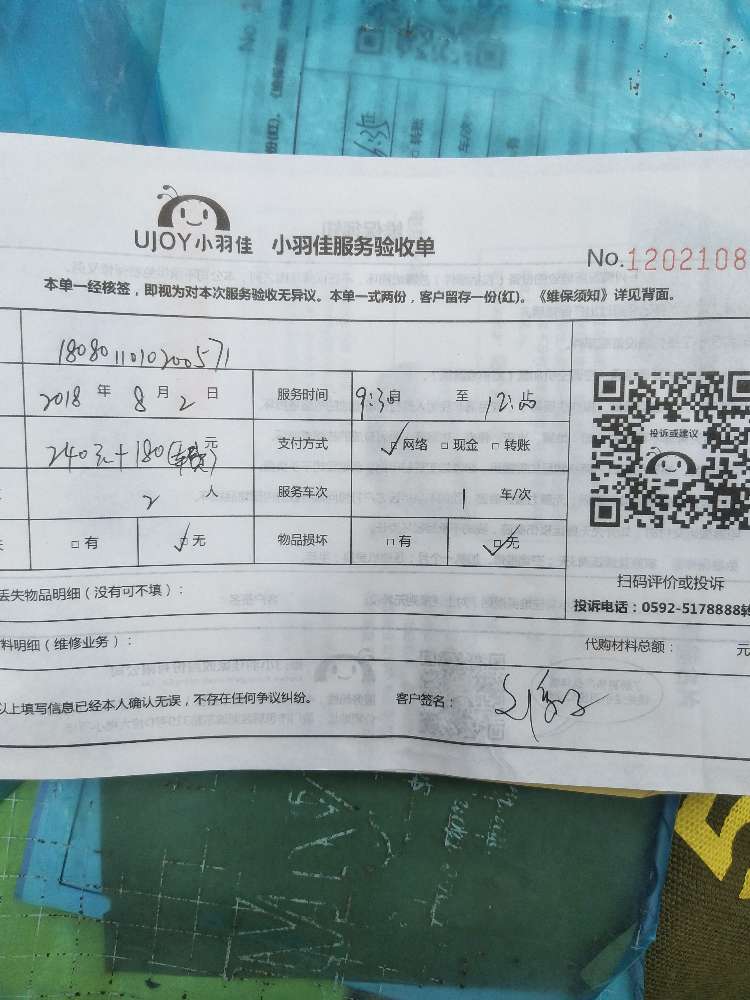 UJOY小羽佳 小羽佳服务验收单
No.1202108
本单一经核签，即视为对本次服务验收无异议。本单一式两份，客户留存一份(红)。《维保须知》详见背面。
1808011010200571
2018 年 8 月 2 日 服务时间 9:30 至 12:00
240元+180(车费)元 支付方式 ☑网络 □现金 □转账
2 人 服务车次 1 车/次
投诉或建议
□有 ☑无 物品损坏 □有 ☑无
扫码评价或投诉
丢失物品明细（没有可不填）：
投诉电话：0592-5178888转
料明细（维修业务）： 代购材料总额： 元
以上填写信息已经本人确认无误，不存在任何争议纠纷。 客户签名：